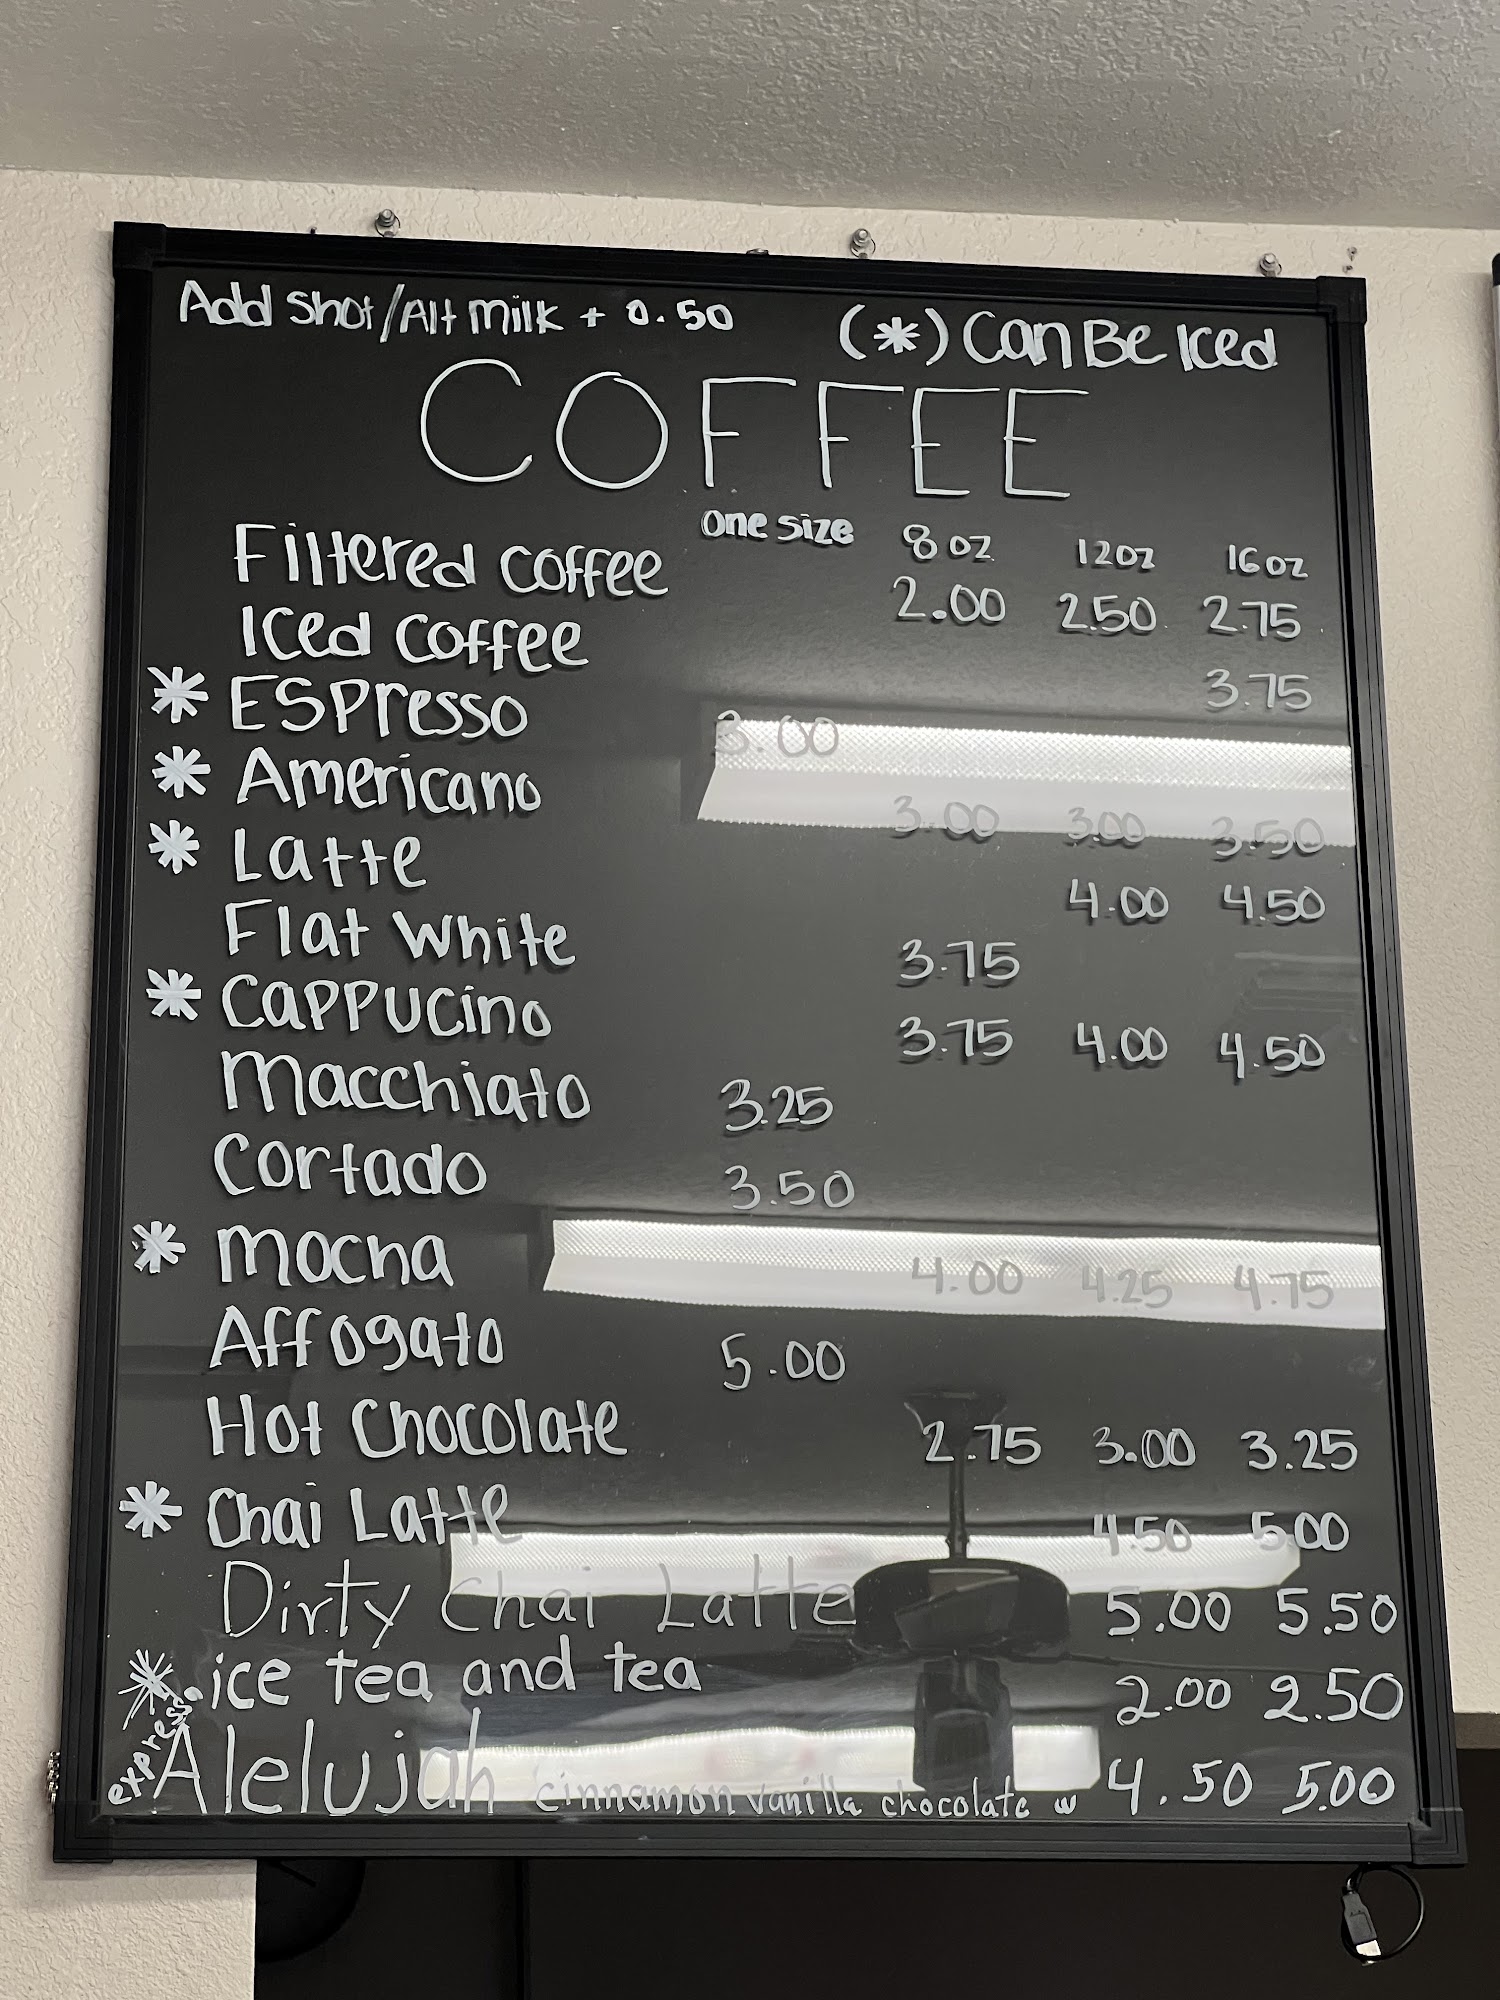 Add Shot/Alt Milk + 0.50
(*) Can Be Iced
COFFEE
One Size 8 oz 12oz 16 oz
Filtered Coffee 2.00 2.50 2.75
Iced Coffee 3.75
* Espresso 3.00
* Americano 3.00 3.00 3.50
* Latte 4.00 4.50
Flat White 3.75
* Cappucino 3.75 4.00 4.50
Macchiato 3.25
Cortado 3.50
* Mocha 4.00 4.25 4.75
Affogato 5.00
Hot Chocolate 2.75 3.00 3.25
* Chai Latte 4.50 5.00
Dirty Chai Latte 5.00 5.50
* ice tea and tea 2.00 2.50
expresso Alelujah cinnamon vanilla chocolate w 4.50 5.00